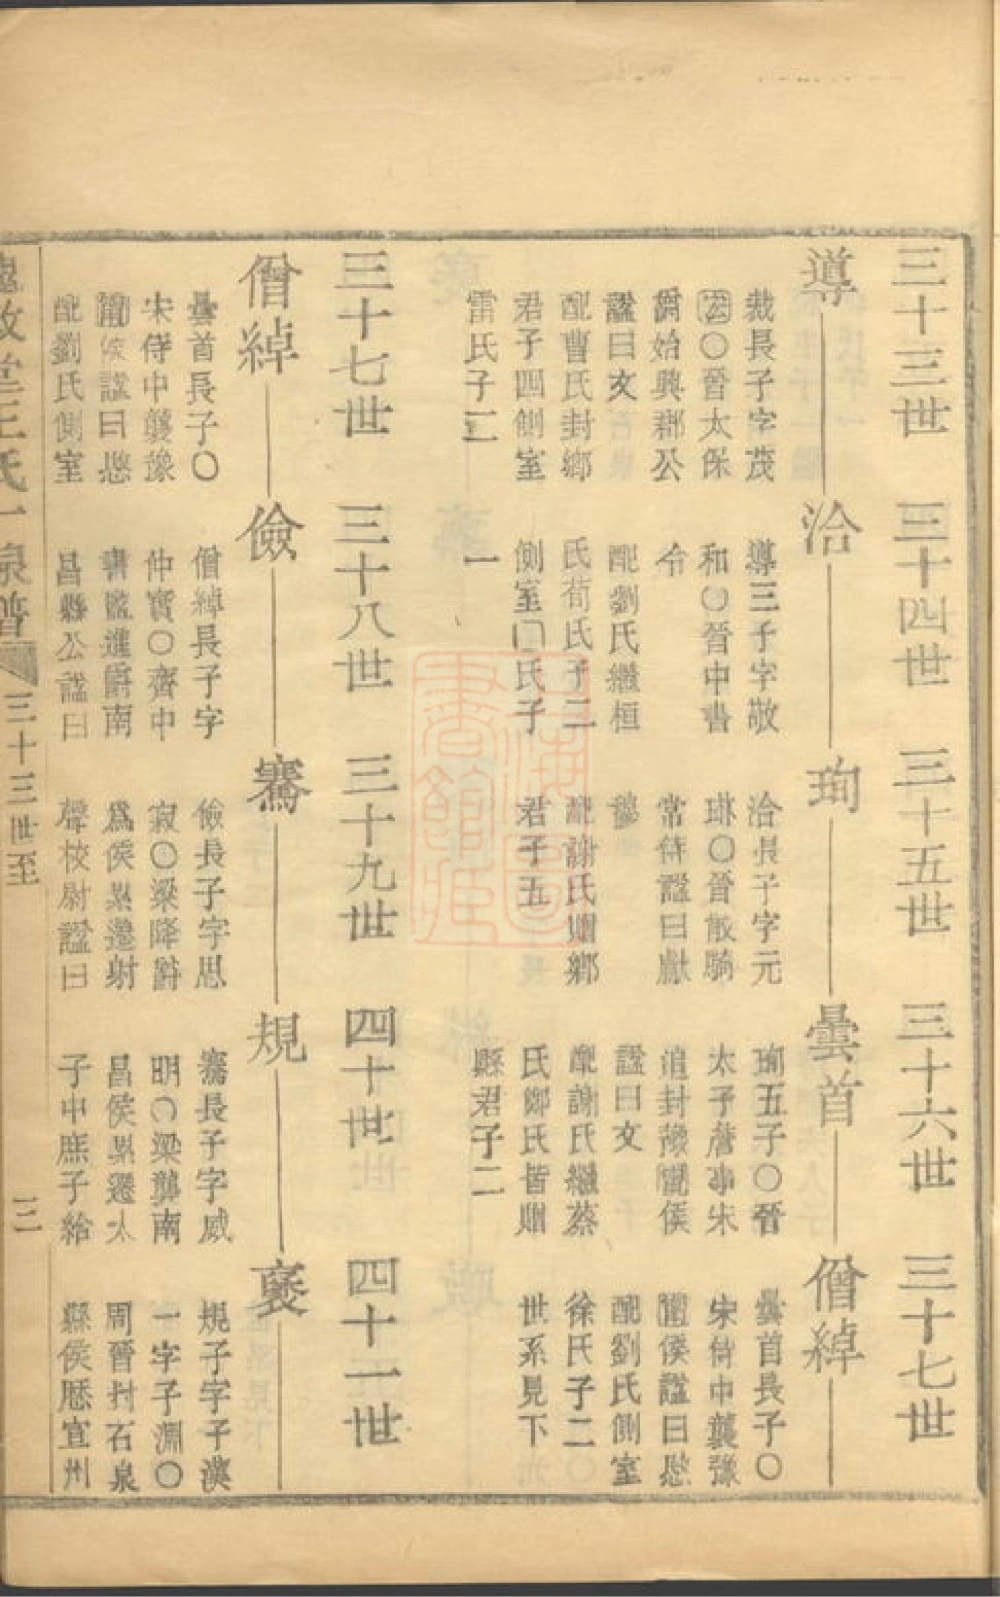 三十三世 三十四世 三十五世 三十六世 三十七世
導 洽 珣 曇首 僧綽
裁長子字茂
弘〇晉太保
爵始興郡公
諡曰文
配曹氏封鄉
君子四側室
雷氏子二
導三子字敬
和〇晉中書
令
配劉氏繼桓
氏荀氏子二
側室囗氏子
一
洽長子字元
琳〇晉散騎
常侍諡曰獻
穆
配謝氏贈鄉
君子五
珣五子〇晉
太子詹事宋
追封豫甯侯
諡曰文
配謝氏繼蔡
氏鄭氏皆贈
縣君子二
曇首長子〇
宋侍中襲豫
甯侯諡曰愍
配劉氏側室
徐氏子二
世系見下
三十七世 三十八世 三十九世 四十世 四十一世
僧綽 儉 騫 規 褒
曇首長子〇
宋侍中襲豫
甯侯諡曰愍
配劉氏側室
僧綽長子字
仲寳〇齊中
書監進爵南
昌縣公諡曰
儉長子字思
寂〇梁降爵
爲侯累遷射
聲校尉諡曰
騫長子字威
明〇梁襲南
昌侯累遷太
子中庶子給
規子字子漢
一字子淵〇
周晉封石泉
縣侯歷宜州
敘堂王氏一泉譜 三十三世至 三